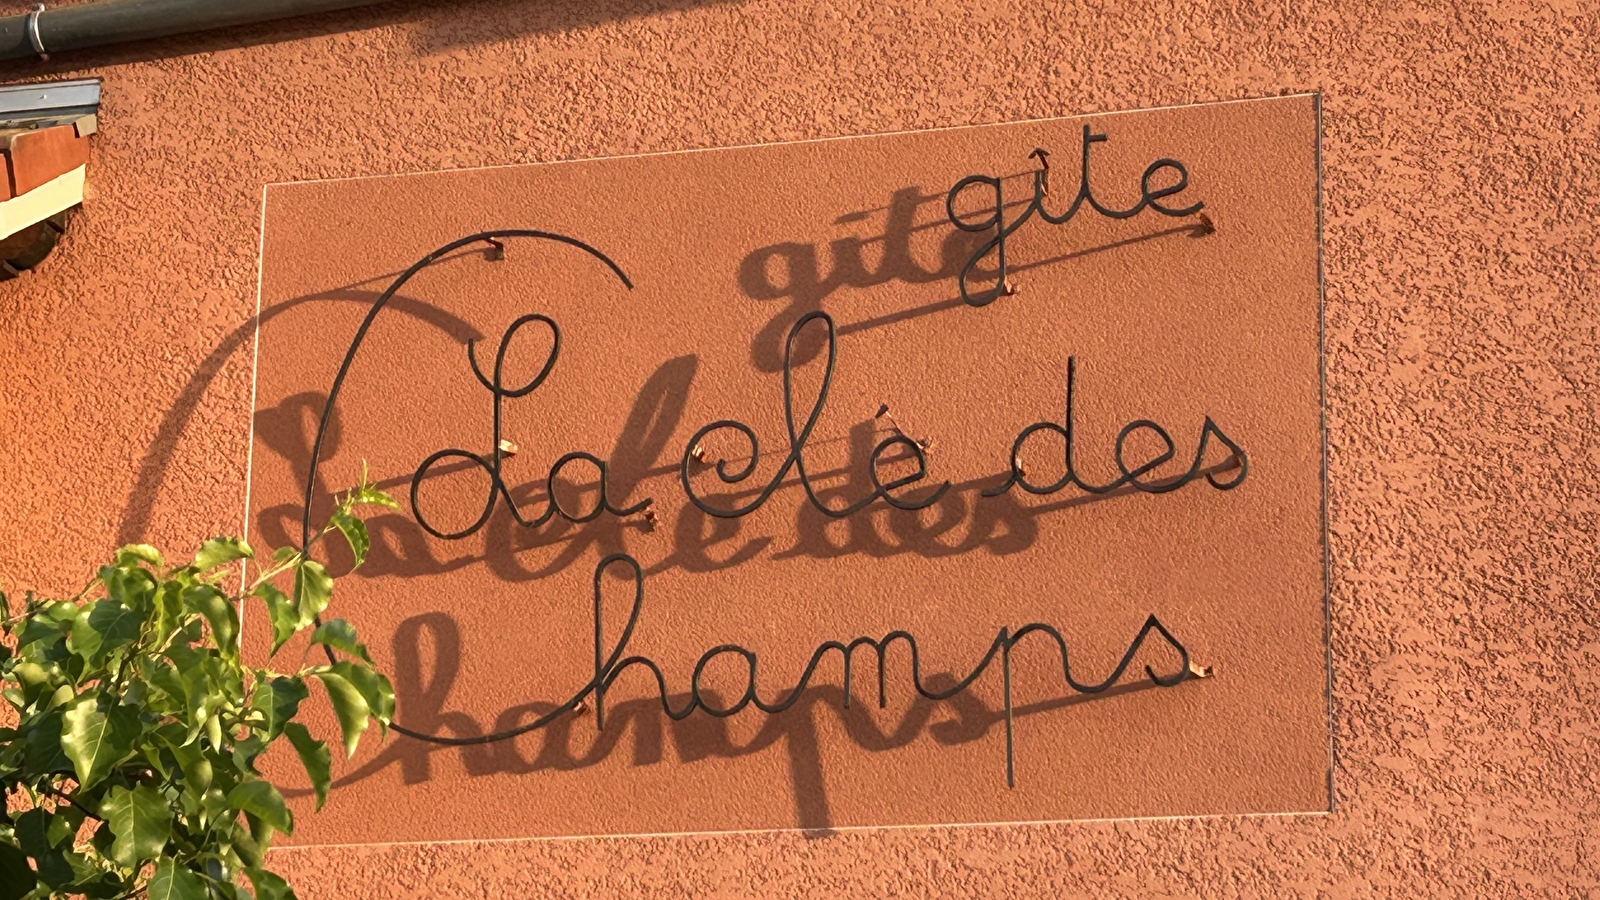 gîte
La clé des
Champs